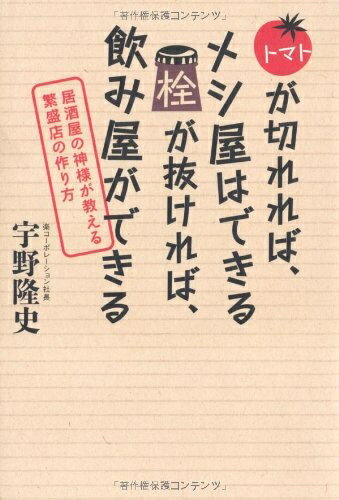 「著作権保護コンテンツ」
トマトが切れれば、
メシ屋はできる
栓が抜ければ、
飲み屋ができる
居酒屋の神様が教える
繁盛店の作り方
楽コーポレーション社長
宇野隆史
「著作権保護コンテンツ」